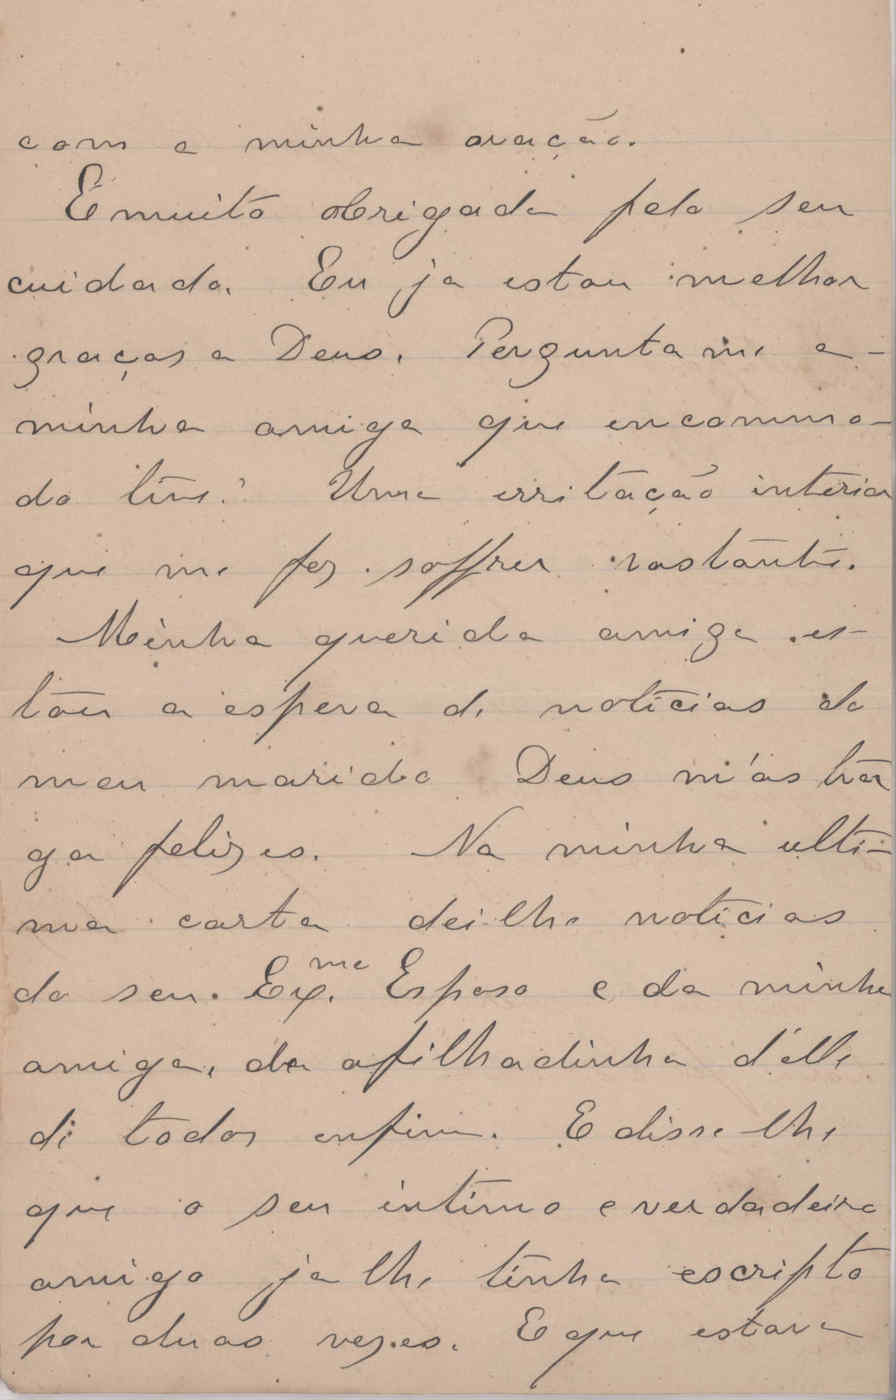 com a minha oração.
E muito obrigada pelo seu
cuidado. Eu ja estou melhor
graças a Deus. Pergunta me a-
minha amiga que encommo-
do tive? Uma irritação interior
que me fez soffrer vastante.
Minha querida amiga es-
tou a espera de noticias do
meu marido Deus m'as tra
ga felizes. Na minha ulti-
ma carta dei-lhe noticias
do seu Exmo. Esposo e da minha
amiga, da afilhadinha d'elle
de todos enfim. E disse-lhe
que o seu intimo e verdadeiro
amigo ja lhe tinha escripto
por duas vezes. E que estava